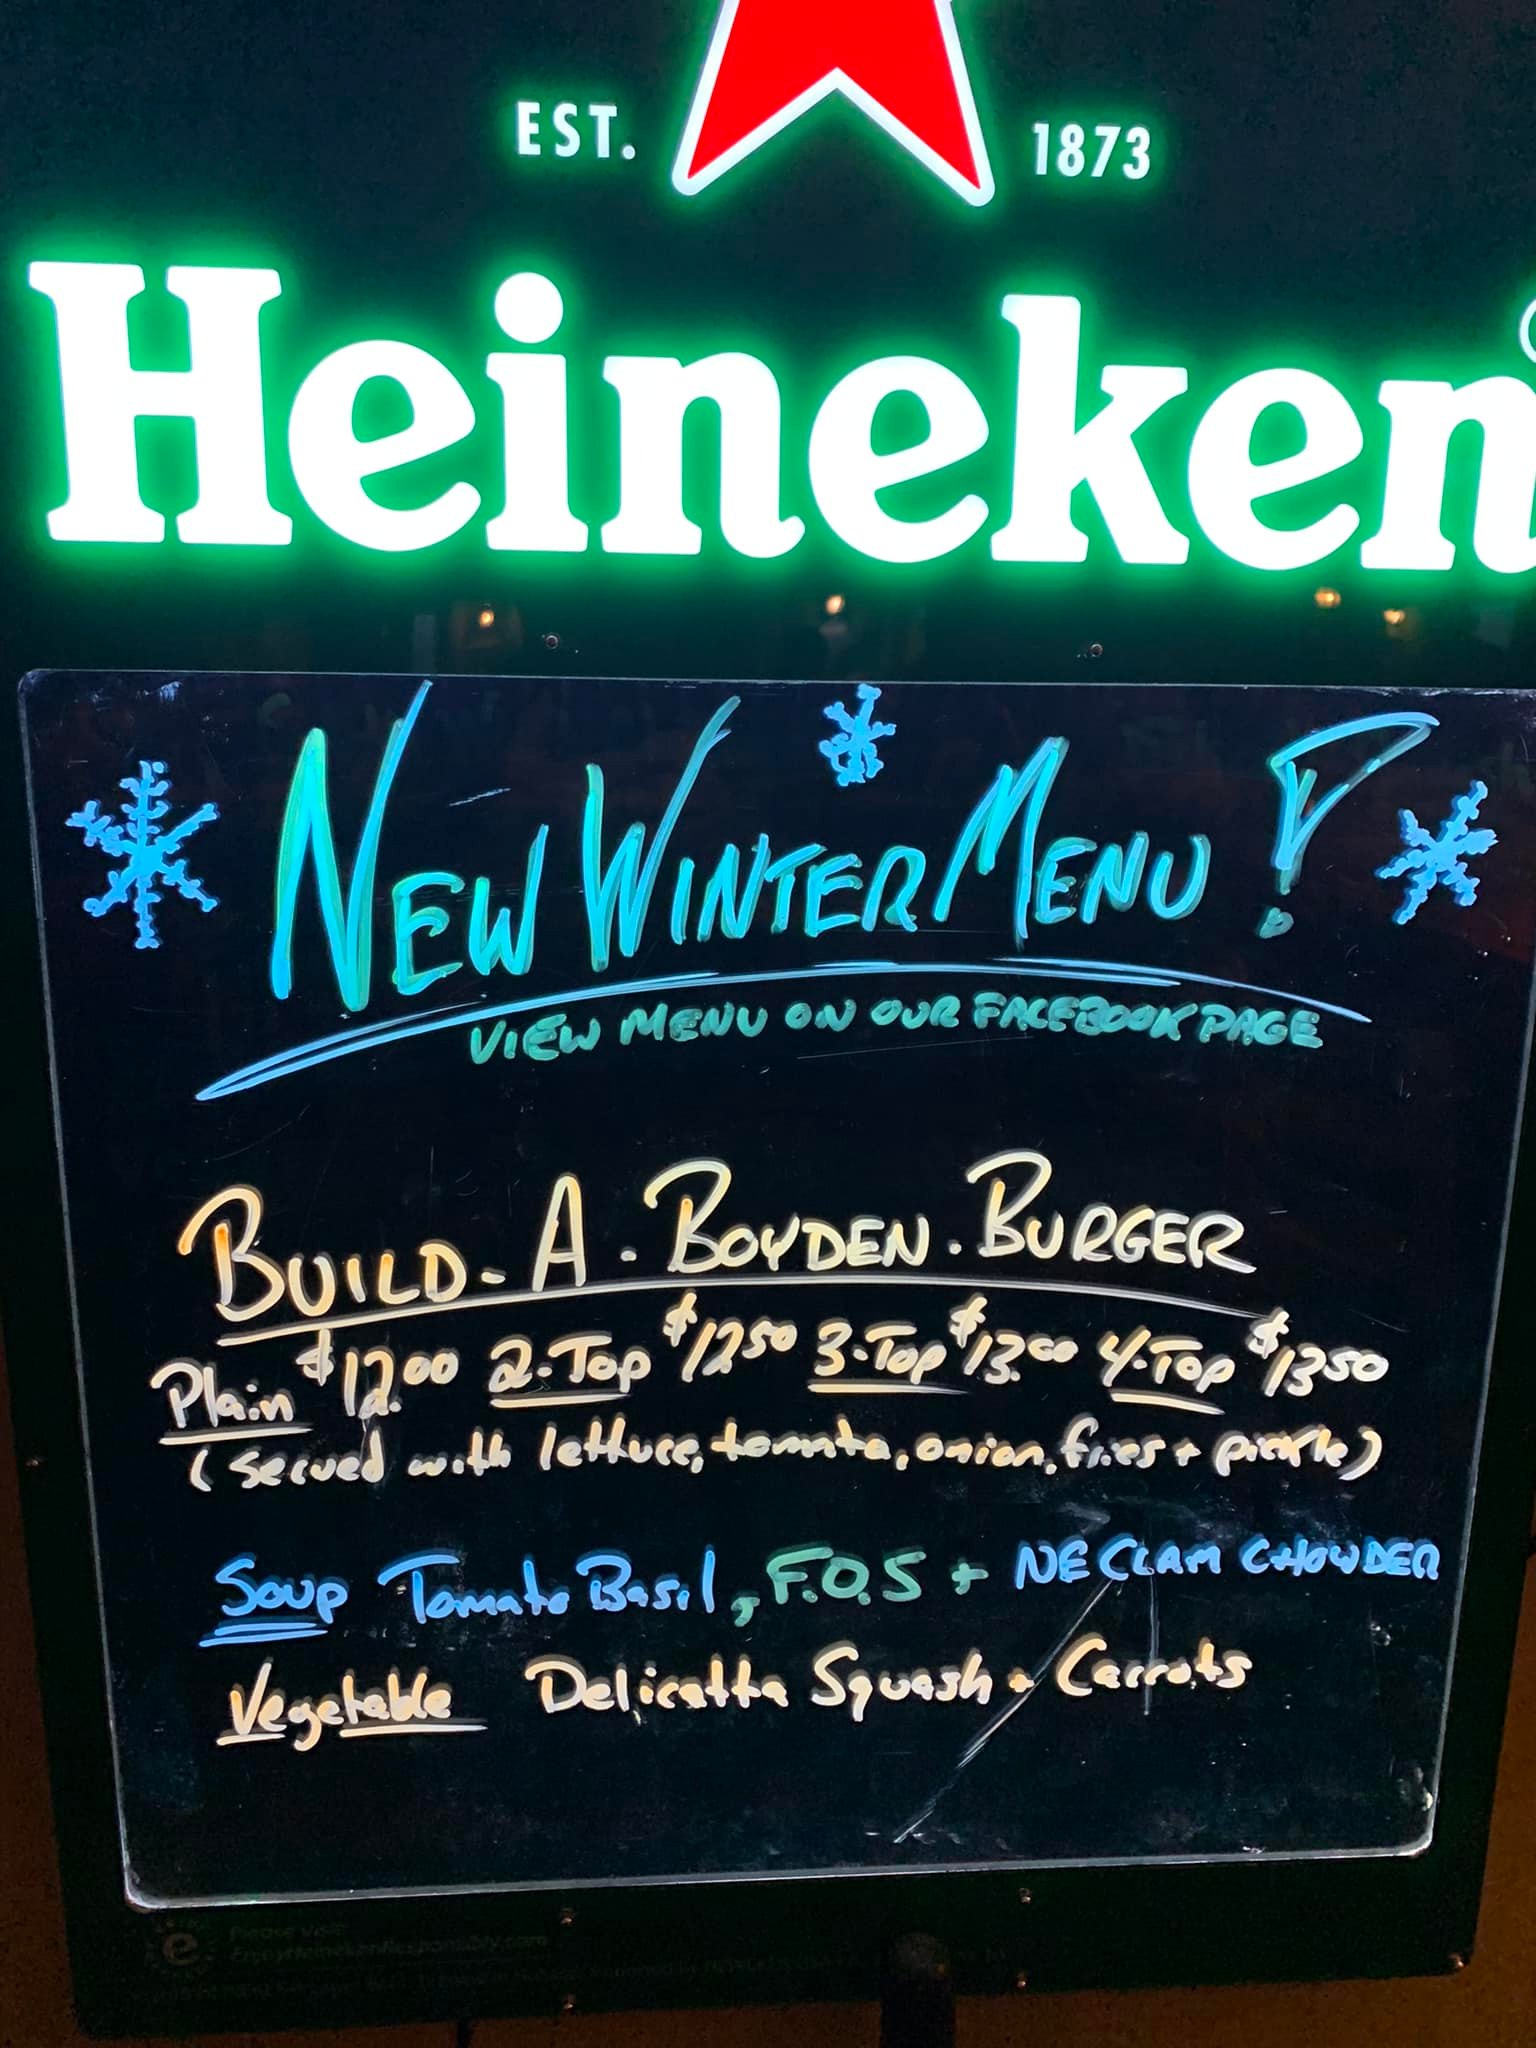 EST. 1873
Heineken
NEW WINTER MENU!
VIEW MENU ON OUR FACEBOOK PAGE
BUILD-A-BOYDEN-BURGER
Plain $12.00 2-Top $12.50 3-Top $13.00 4-Top $13.50
(served with lettuce, tomato, onion, fries + pickle)
Soup Tomato Basil, F.O.S + NE CLAM CHOWDER
Vegetable Delicatta Squash + Carrots
e Please visit
EnjoyHeinekenResponsibly.com